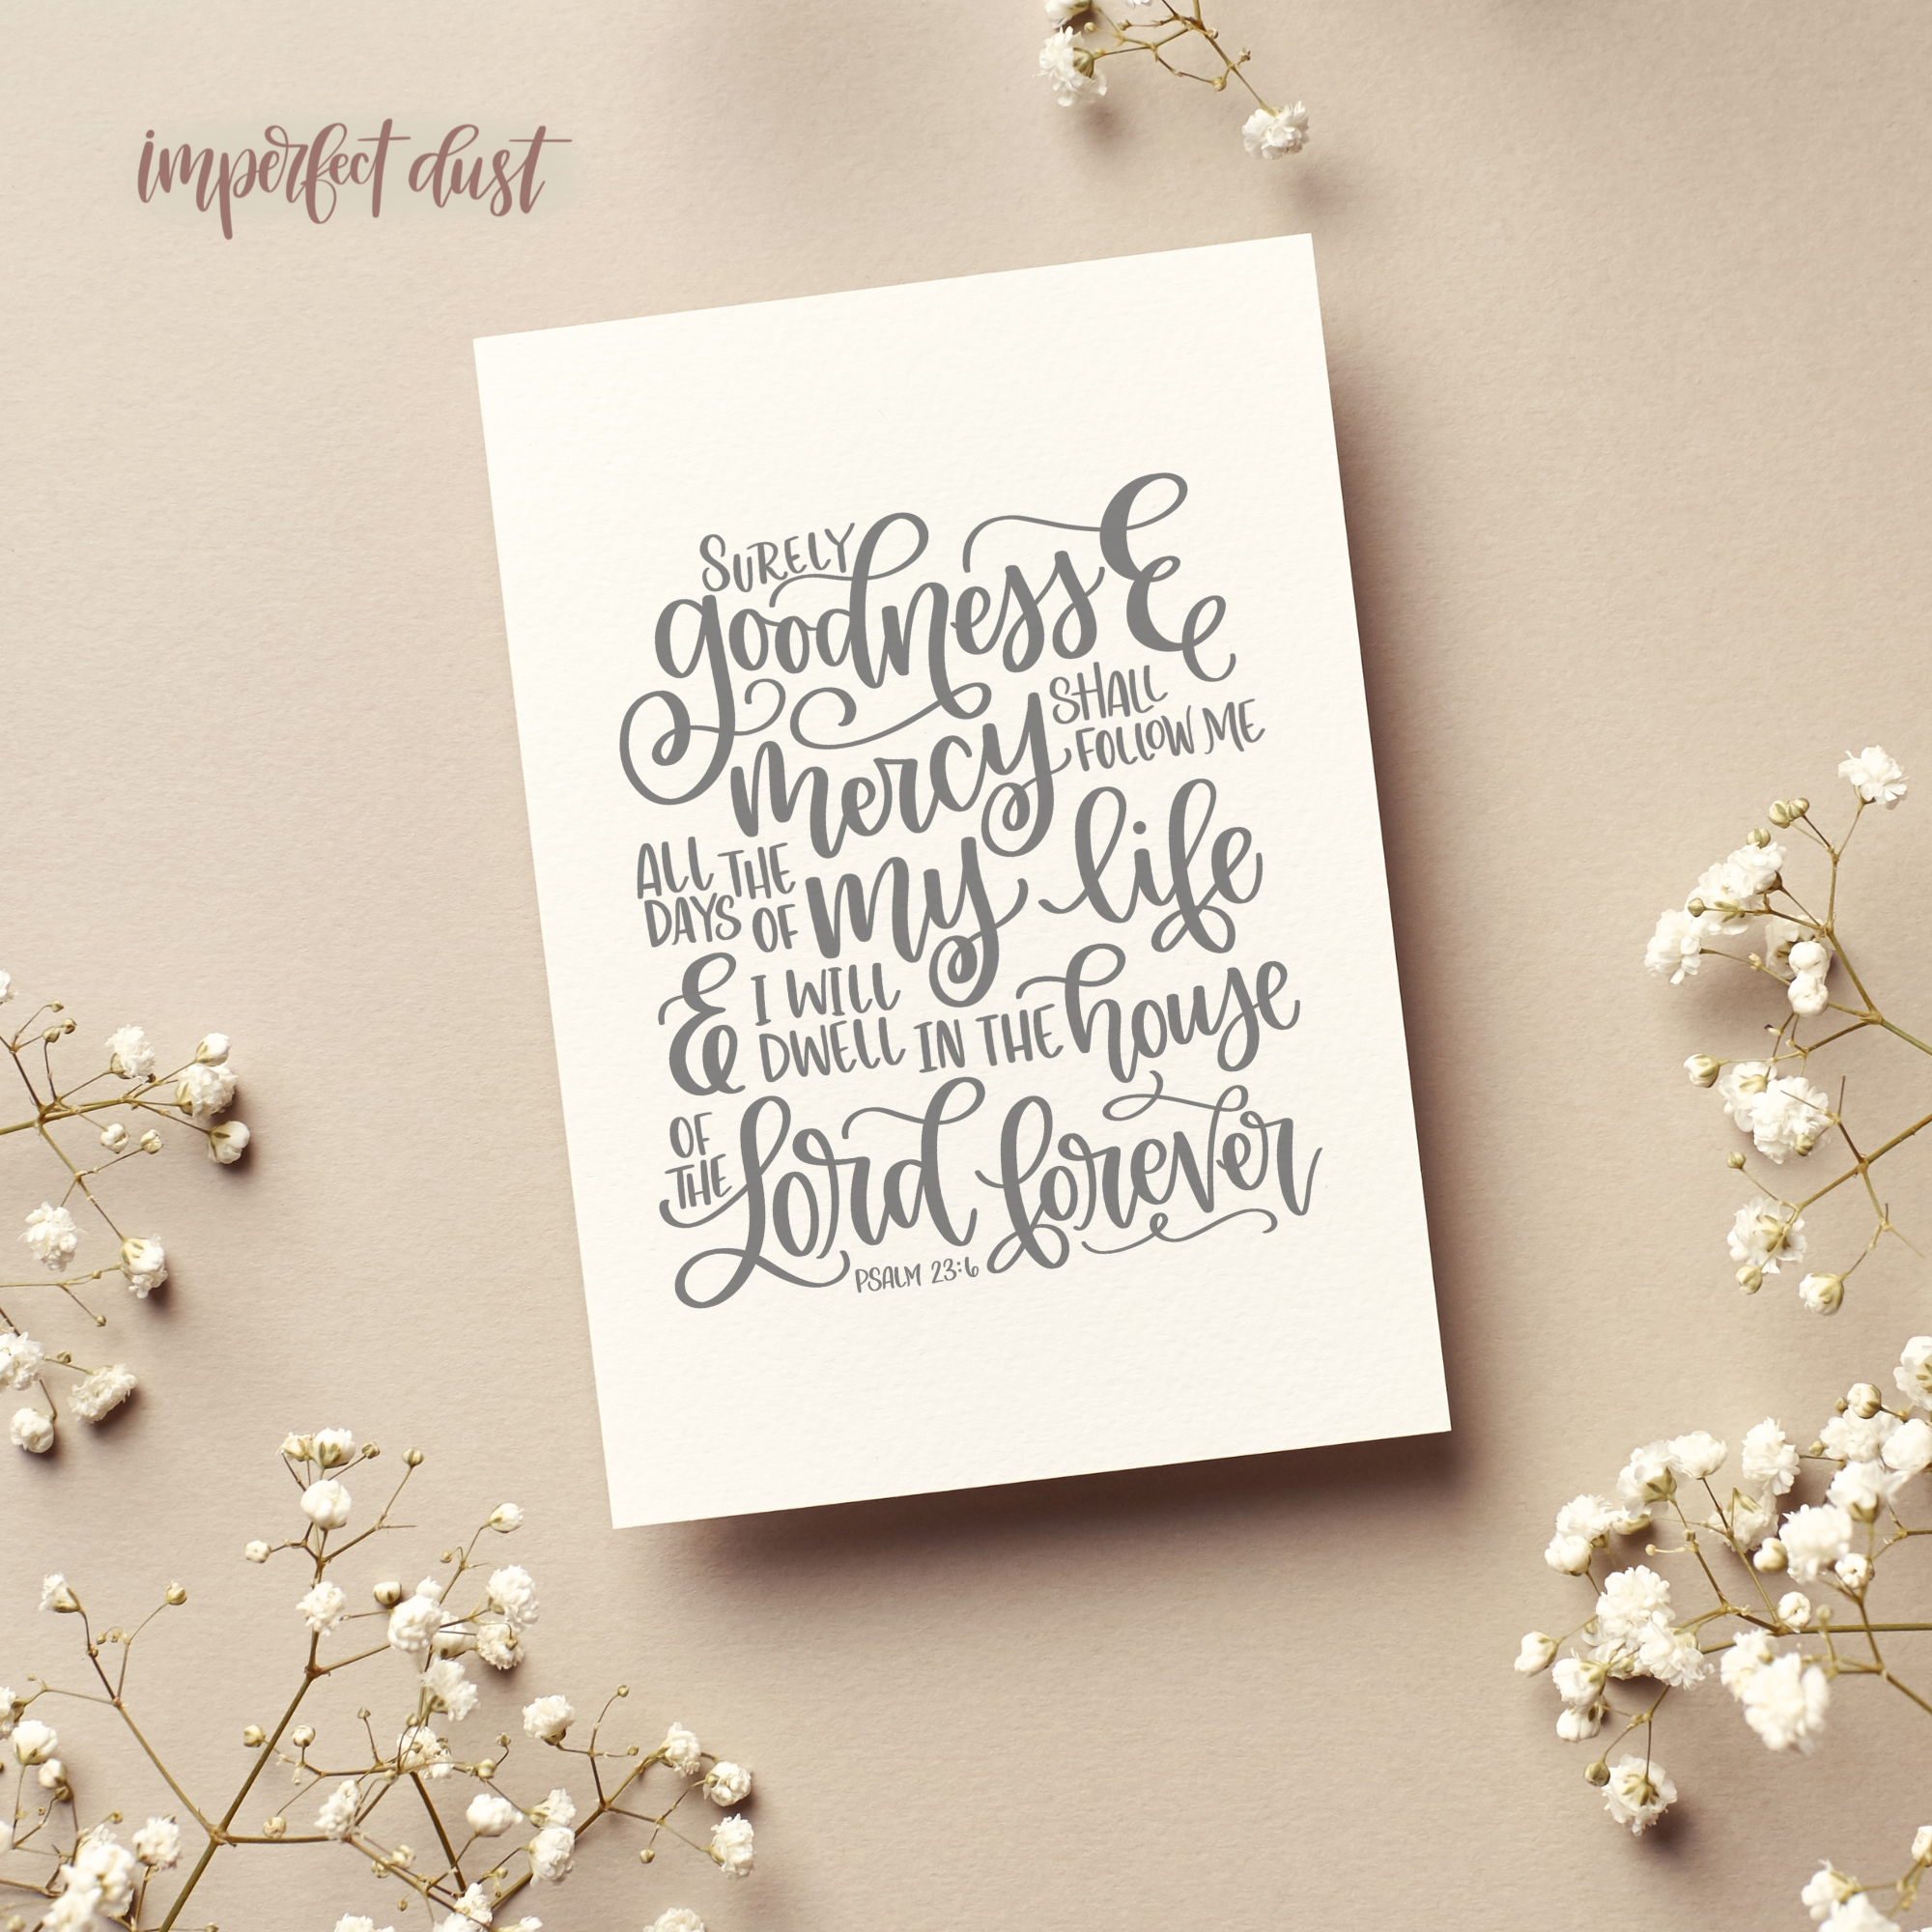 imperfect dust
SURELY
goodness &
mercy SHALL
FOLLOW ME
ALL THE
DAYS OF my life
& I WILL
DWELL IN THE house
OF
THE Lord forever
PSALM 23:6